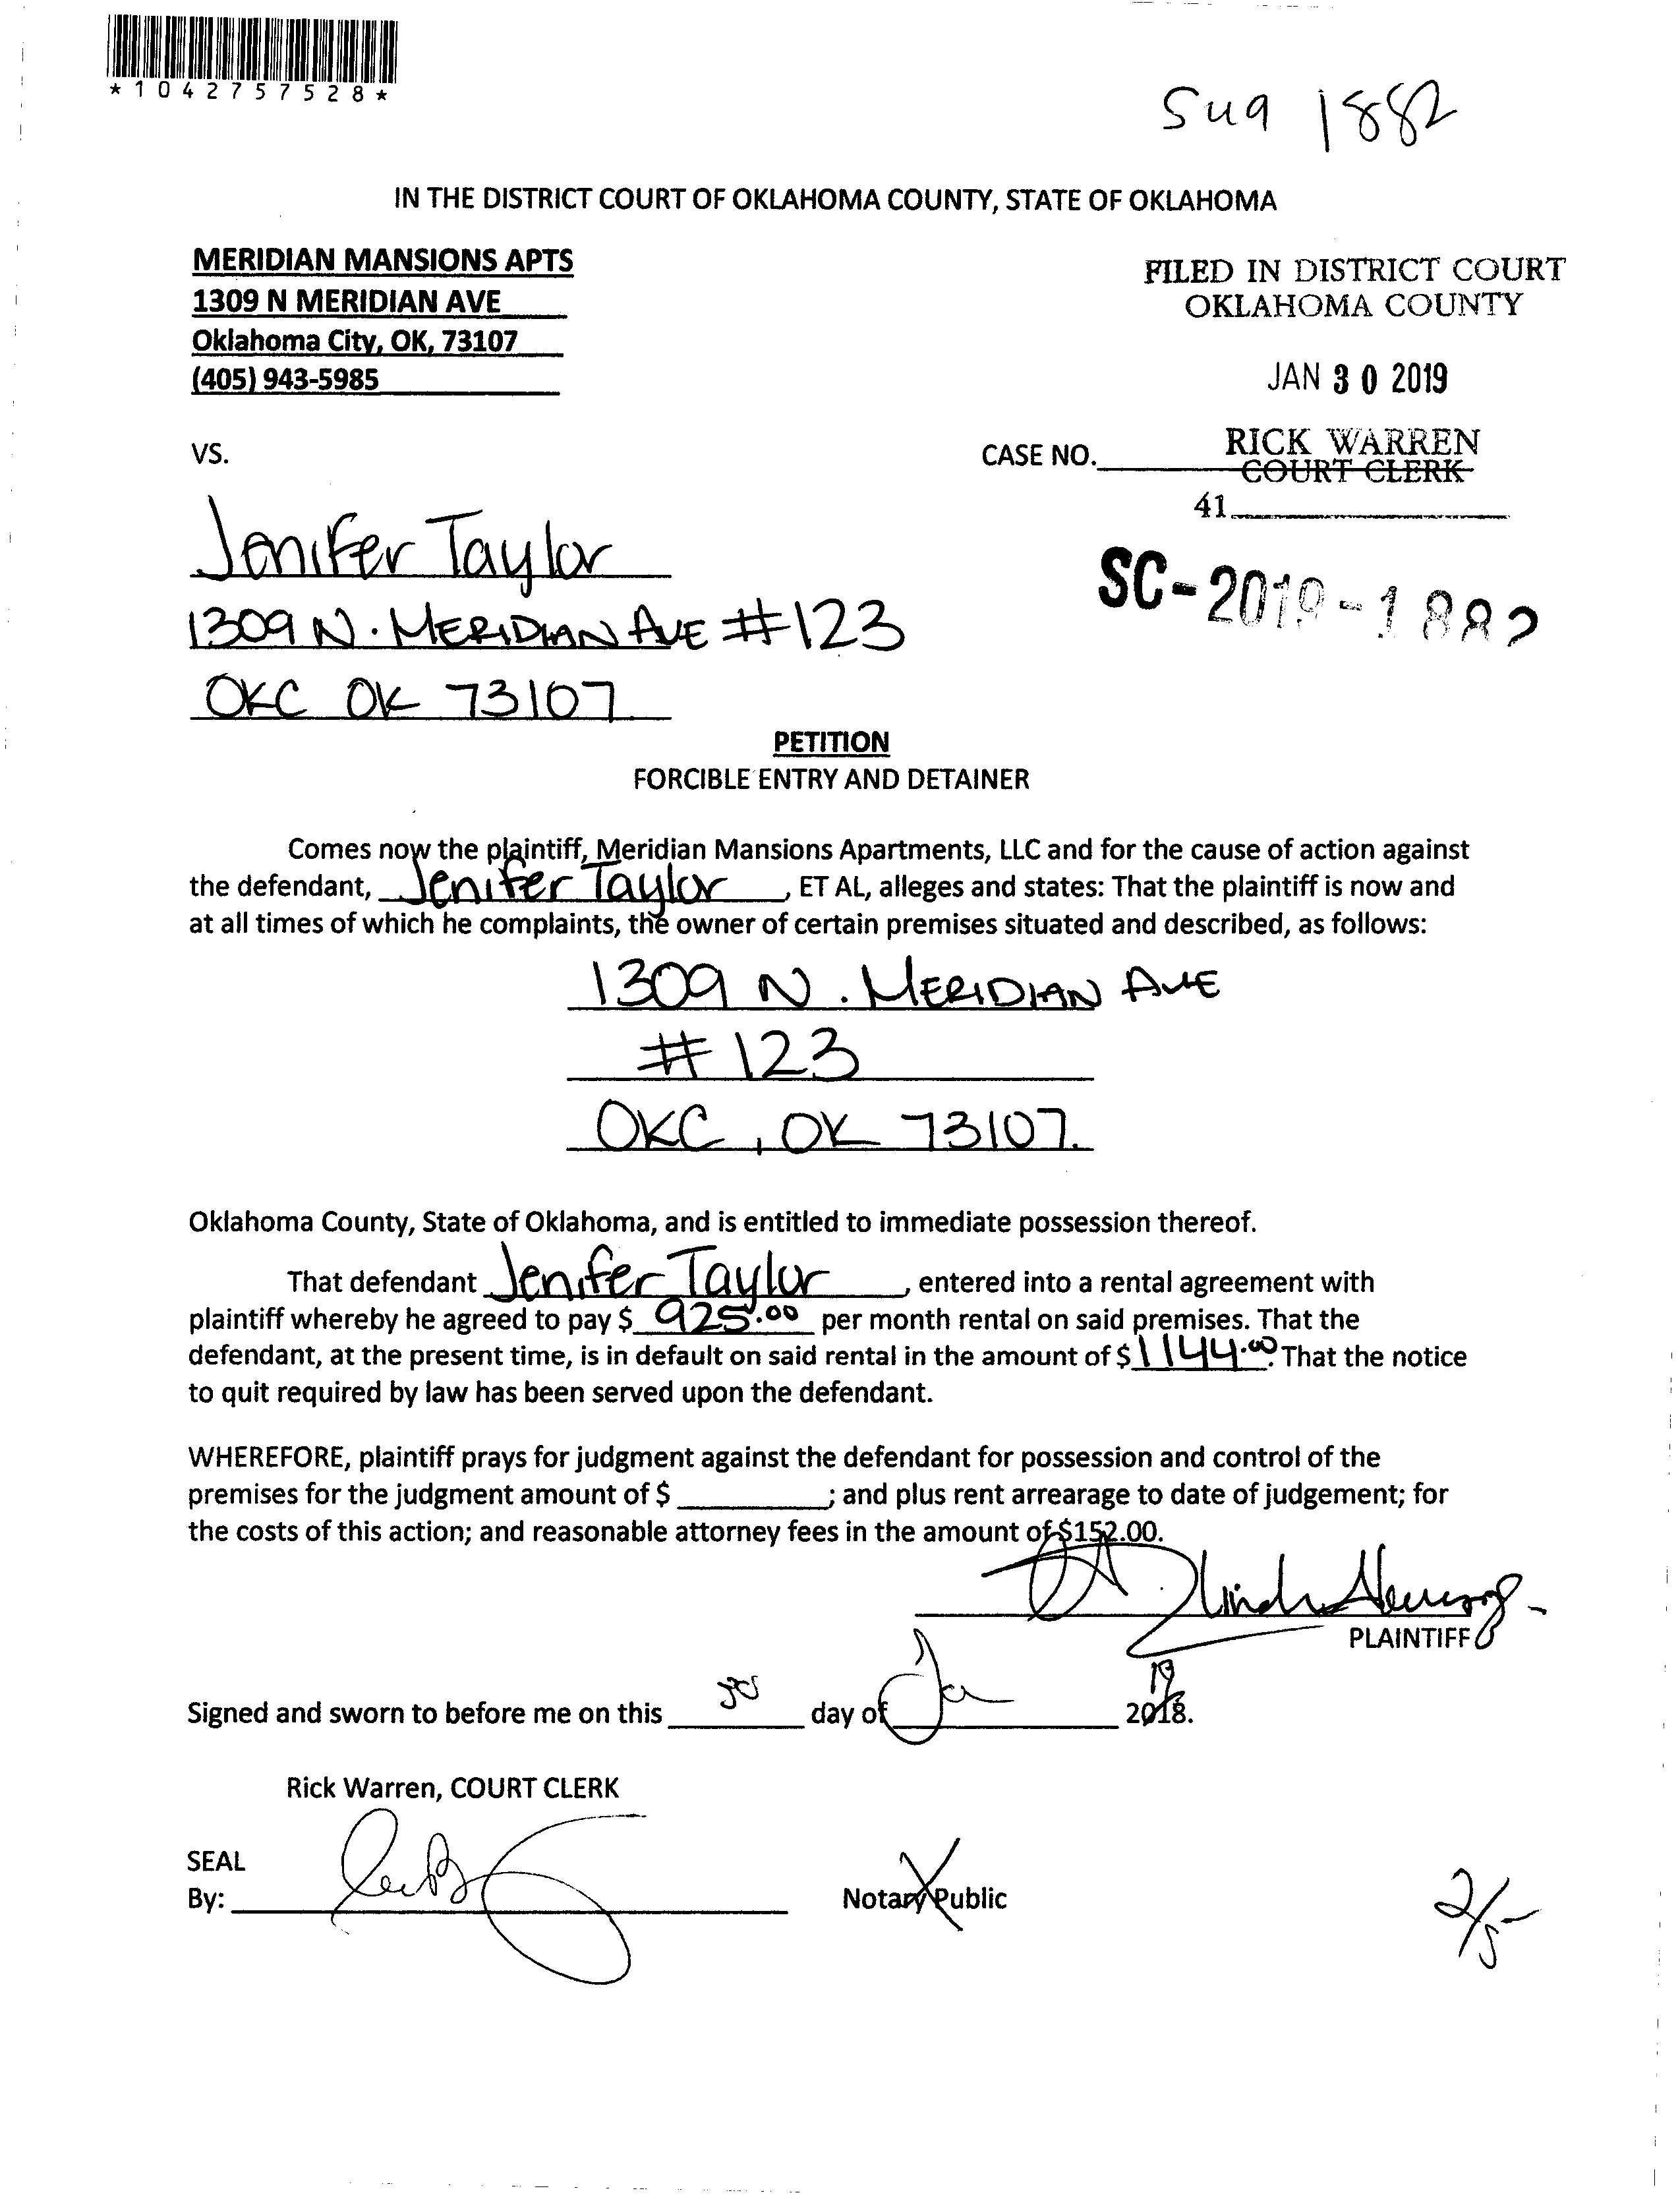 *1042757528*
1882
IN THE DISTRICT COURT OF OKLAHOMA COUNTY, STATE OF OKLAHOMA
MERIDIAN MANSIONS APTS
1309 N MERIDIAN AVE
Oklahoma City, OK, 73107
(405) 943-5985
FILED IN DISTRICT COURT
OKLAHOMA COUNTY
JAN 30 2019
VS.
CASE NO.
RICK WARREN
COURT CLERK
41
Jenifer Taylor
1309 N. MERIDIAN AVE #123
OKC OK 73107
SC-2019-1882
PETITION
FORCIBLE ENTRY AND DETAINER
Comes now the plaintiff, Meridian Mansions Apartments, LLC and for the cause of action against
the defendant, Jenifer Taylor, ET AL, alleges and states: That the plaintiff is now and
at all times of which he complaints, the owner of certain premises situated and described, as follows:
1309 N. MERIDIAN AVE
#123
OKC, OK 73107.
Oklahoma County, State of Oklahoma, and is entitled to immediate possession thereof.
That defendant Jenifer Taylor, entered into a rental agreement with
plaintiff whereby he agreed to pay $ 925.00 per month rental on said premises. That the
defendant, at the present time, is in default on said rental in the amount of $1144.00. That the notice
to quit required by law has been served upon the defendant.
WHEREFORE, plaintiff prays for judgment against the defendant for possession and control of the
premises for the judgment amount of $ ; and plus rent arrearage to date of judgement; for
the costs of this action; and reasonable attorney fees in the amount of $152.00.
PLAINTIFF
Signed and sworn to before me on this 30 day of Ja 2018. 19
Rick Warren, COURT CLERK
SEAL
By:
Notary Public
2/5